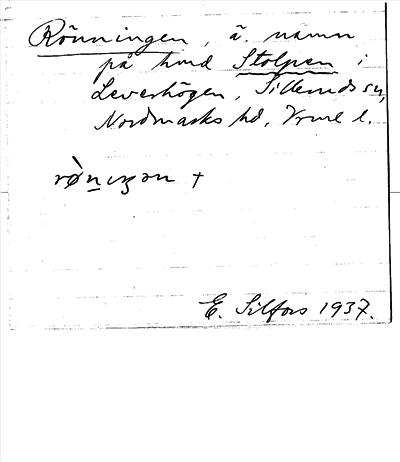 Rönningen, ä. namn
på hmd Stolpen i
Leverhögen, Silleruds sn,
Nordmarks hd, Vrml l.
E. Silfors 1937.